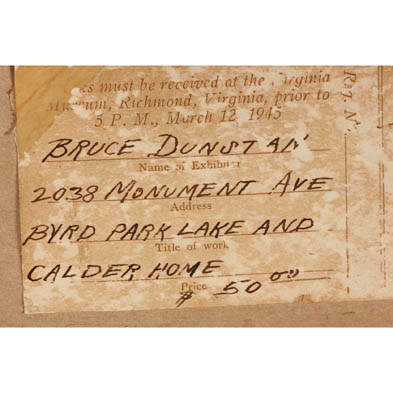 must be received at the Virginia
Museum, Richmond, Virginia, prior to
5 P. M., March 12 1945
BRUCE DUNSTAN
Name of Exhibitor
2038 MONUMENT AVE
Address
BYRD PARK LAKE AND
Title of work
CALDER HOME
Price
$ 50 00